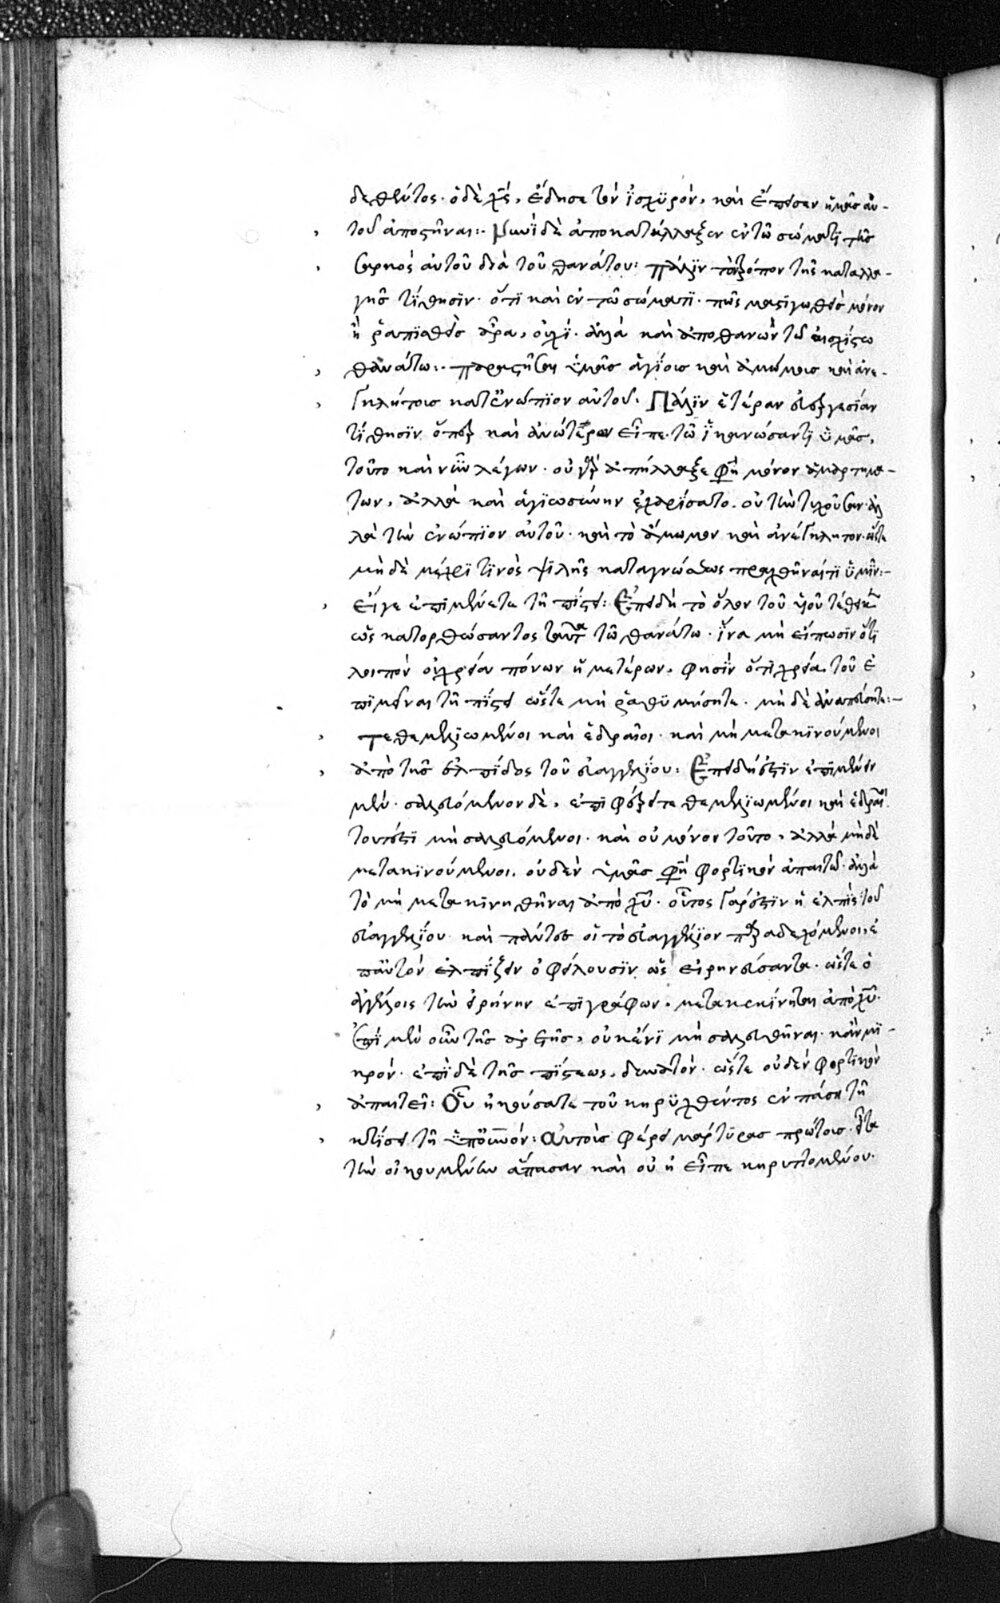 δεθέντος· ὁ δὲ χς, ἔδησε τὸν ἰσχϋρόν, καὶ ἔπεισεν ἡμᾶς αὐ-
τοῦ ἀποστῆναι:· Νυνὶ δὲ ἀποκατήλλαξεν ἐν τῶ σώματι τῆς
σαρκὸς αὐτοῦ διὰ τοῦ θανάτου: πάλϊν τὸν τρόπον τῆς καταλλα-
γῆς τίθησϊν· ὅτι καὶ ἐν τῶ σώματι· πῶς μαστιγωθεὶς μόνον
ἢ ῥαπϊσθεὶς ἆρα, οὐχί· ἀλλὰ καὶ ἀποθανὼν τῶ αἰσχίστω
θανάτω:· παραστῆσαι ὑμᾶς ἁγίους καὶ ἀμώμους καὶ ἀνε-
γκλήτους κατενώπϊον αὐτοῦ· Πάλϊν ἑτέραν εὐεργεσίαν
τίθησϊν ὅπερ καὶ ἀνώτερον εἶπε· τῶ ἱκανώσαντι ὑμᾶς,
τοῦτο καὶ νῦν λέγων· οὐ γὰρ ἀπήλλαξε φη μόνον ἁμαρτημά-
των, ἀλλὰ καὶ ἁγϊωσύνην ἐχαρίσατο· οὐ τὴν τυχοῦσαν· ἀλ
λὰ τὴν ἐνώπϊον αὐτοῦ· καὶ τὸ ἄμωμον καὶ ἀνέγκλητον· ὥστε
μὴ δὲ μέχρϊ τϊνὸς ψϊλῆς καταγνώσεως πραχθῆναί τι ὑμῖν:-
εἴγε ἐπιμένετε τῆ πίστει: Ἐπειδὴ τὸ ὅλον τοῦ υἱοῦ τέθεικεν
ὡς κατορθώσαντος ταῦτα τῶ θανάτω· ἵνα μὴ εἴπωσϊν ὅτι
λοιπὸν οὐ χρεία πόνων ἡμετέρων, φησὶν ὅτι χρεία τοῦ ἐ
πϊμεῖναι τῆ πίστει ὥστε μὴ ῥαθϋμήσητε· μὴ δὲ ἀναπέσητε:-
τεθεμελϊωμένοι καὶ ἑδραῖοι· καὶ μὴ μετακϊνούμενοι
ἀπὸ τῆς ἐλπίδος τοῦ εὐαγγελίου: Ἐπειδή ἐστϊν ἐπϊμένειν
μὲν· σαλευόμενον δὲ, ἐπϊφέρει τεθεμελϊωμένοι καὶ ἑδραῖοι
τουτέστι μὴ σαλευόμενοι· καὶ οὐ μόνον τοῦτο, ἀλλὰ μὴ δὲ
μετακϊνούμενοι. οὐδὲν ὑμᾶς φη φορτϊκὸν ἀπαιτῶ· ἀλλὰ
τὸ μὴ μετακϊνηθῆναι ἀπὸ χυ· οὗτος γάρ ἐστϊν ἡ ἐλπὶς τοῦ
εὐαγγελίου καὶ πάντες οἱ τὸ εὐαγγέλϊον παραδεχόμενοι, ἐ
π αὐτὸν ἐλπίζειν ὀφείλουσϊν ὡς εἰρηνεύσαντα· ὥστε ὁ
ἀγγέλοις τὴν εἰρήνην ἐπϊγράφων, μετακεκίνηται ἀπὸ χυ·
Ἐπὶ μὲν οὖν τῆς ἀρετῆς, οὐκ ἔνϊ μὴ σαλευθῆναι κἂν μϊ-
κρόν· ἐπὶ δὲ τῆς πίστεως, δυνατόν· ὥστε οὐδὲν φορτϊκὸν
ἀπαιτεῖ: Οὗ ἠκούσατε τοῦ κηρϋχθέντος ἐν πάση τῆ
κτίσει τῆ ὑπὸ τὸν οὐνόν: Αὐτοὺς φέρει μάρτϋρας πρώτους· εἶτα
τὴν οἰκουμένην ἅπασαν καὶ οὐ εἶπε κηρυττομένου·